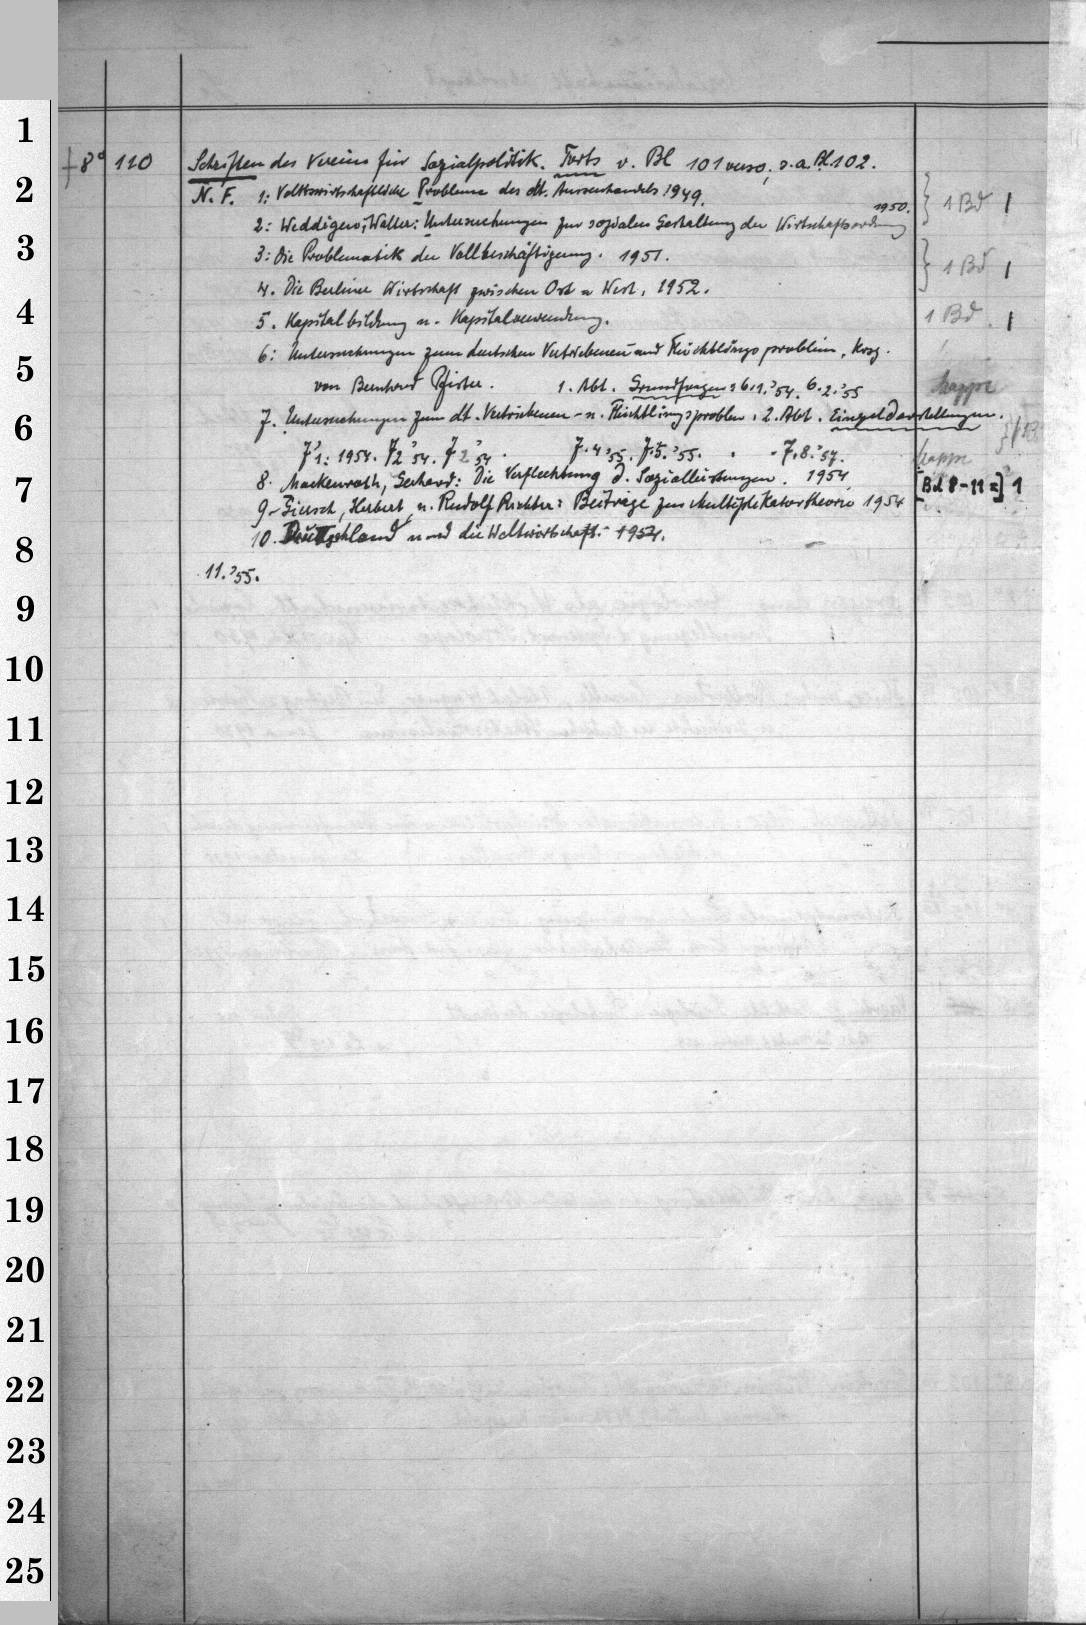 1
‡8° 110 Schriften des Vereins für Sozialpolitik. Forts v. Bl 101 verso, s.a. Bl. 102.
2
N. F. 1: Volkswirtschaftliche Probleme des dt. Aussenhandels 1949.
1950. } 1 Bd |
2: Weddigen, Walter: Untersuchungen zur sozialen Gestaltung der Wirtschaftsordnung
3
3: Die Problematik der Vollbeschäftigung. 1951. } 1 Bd |
4. Die Berliner Wirtschaft zwischen Ost u West, 1952.
4
5. Kapitalbildung u. Kapitalverwendung. 1 Bd. |
6: Untersuchungen zum deutschen Vertriebenen und Flüchtlingsproblem, hrsg.
5
von Bernhard Pfister. 1. Abt. Grundfragen 6.1.'54. 6.2.'55 kappe
7. Untersuchungen zum dt. Vertriebenen- u. Flüchtlingsproblem. 2. Abt. Einzeldarstellungen.
6
7,1: 1954. 7,2 '54. 7.4 '55. 7.5. '55. 7.8. '57. kappe
8. Mackenroth, Gerhard: Die Verflechtung d. Sozialleistungen. 1954 [Bd 8-11=] 1
7
9. Giersch, Herbert, u. Rudolf Richter: Beiträge zur Multiplikatortheorie 1954
10. Deutschland und die Weltwirtschaft. 1954.
8
11. '55.
9
10
11
12
13
14
15
16
17
18
19
20
21
22
23
24
25